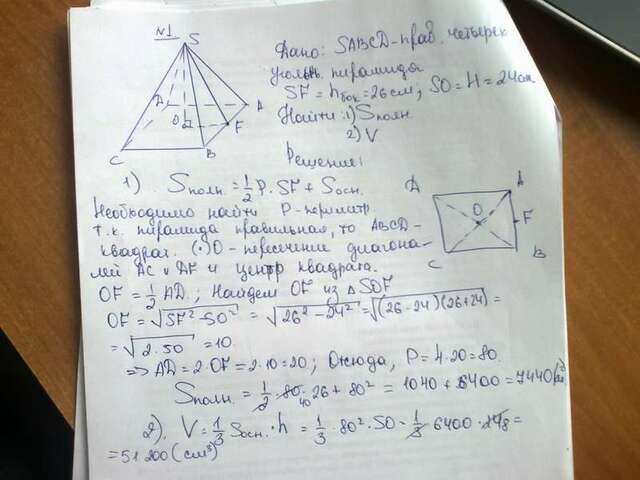 №1
S
Дано: SABCD - прав. четырех
угольн. пирамида
SF = hбок = 26 см; SO = H = 24 см
Найти: 1) Sполн
2) V
D A
O F
C B
Решение:
1). Sполн = 1/2 P · SF + Sосн.
Необходимо найти P - периметр
т.к. пирамида правильная, то ABCD -
квадрат. (·)O - пересечение диагона-
лей AC и DF и центр квадрата.
D A
O F
C B
OF = 1/2 AD.; Найдем OF из △ SOF
OF = √SF² - SO² = √26² - 24² = √(26 - 24)(26 + 24) =
= √2 · 50 = 10.
=> AD = 2·OF = 2·10 = 20; Отсюда, P = 4·20 = 80.
Sполн. = 1/2 · 80 · 26 + 80² = 1040 + 6400 = 7440 (см²)
40
2). V = 1/3 Sосн. · h = 1/3 · 80² · SO = 1/3 · 6400 · 24 8 =
= 51 200 (см³)